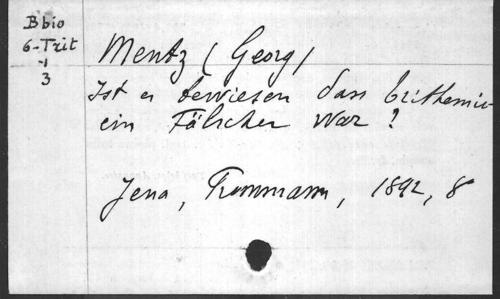 B bio
6-Trit
-1
3
Mentz (Georg)
Ist es bewiesen dass Trithemius
ein Fälscher war ?
Jena, Frommann, 1892, 8°